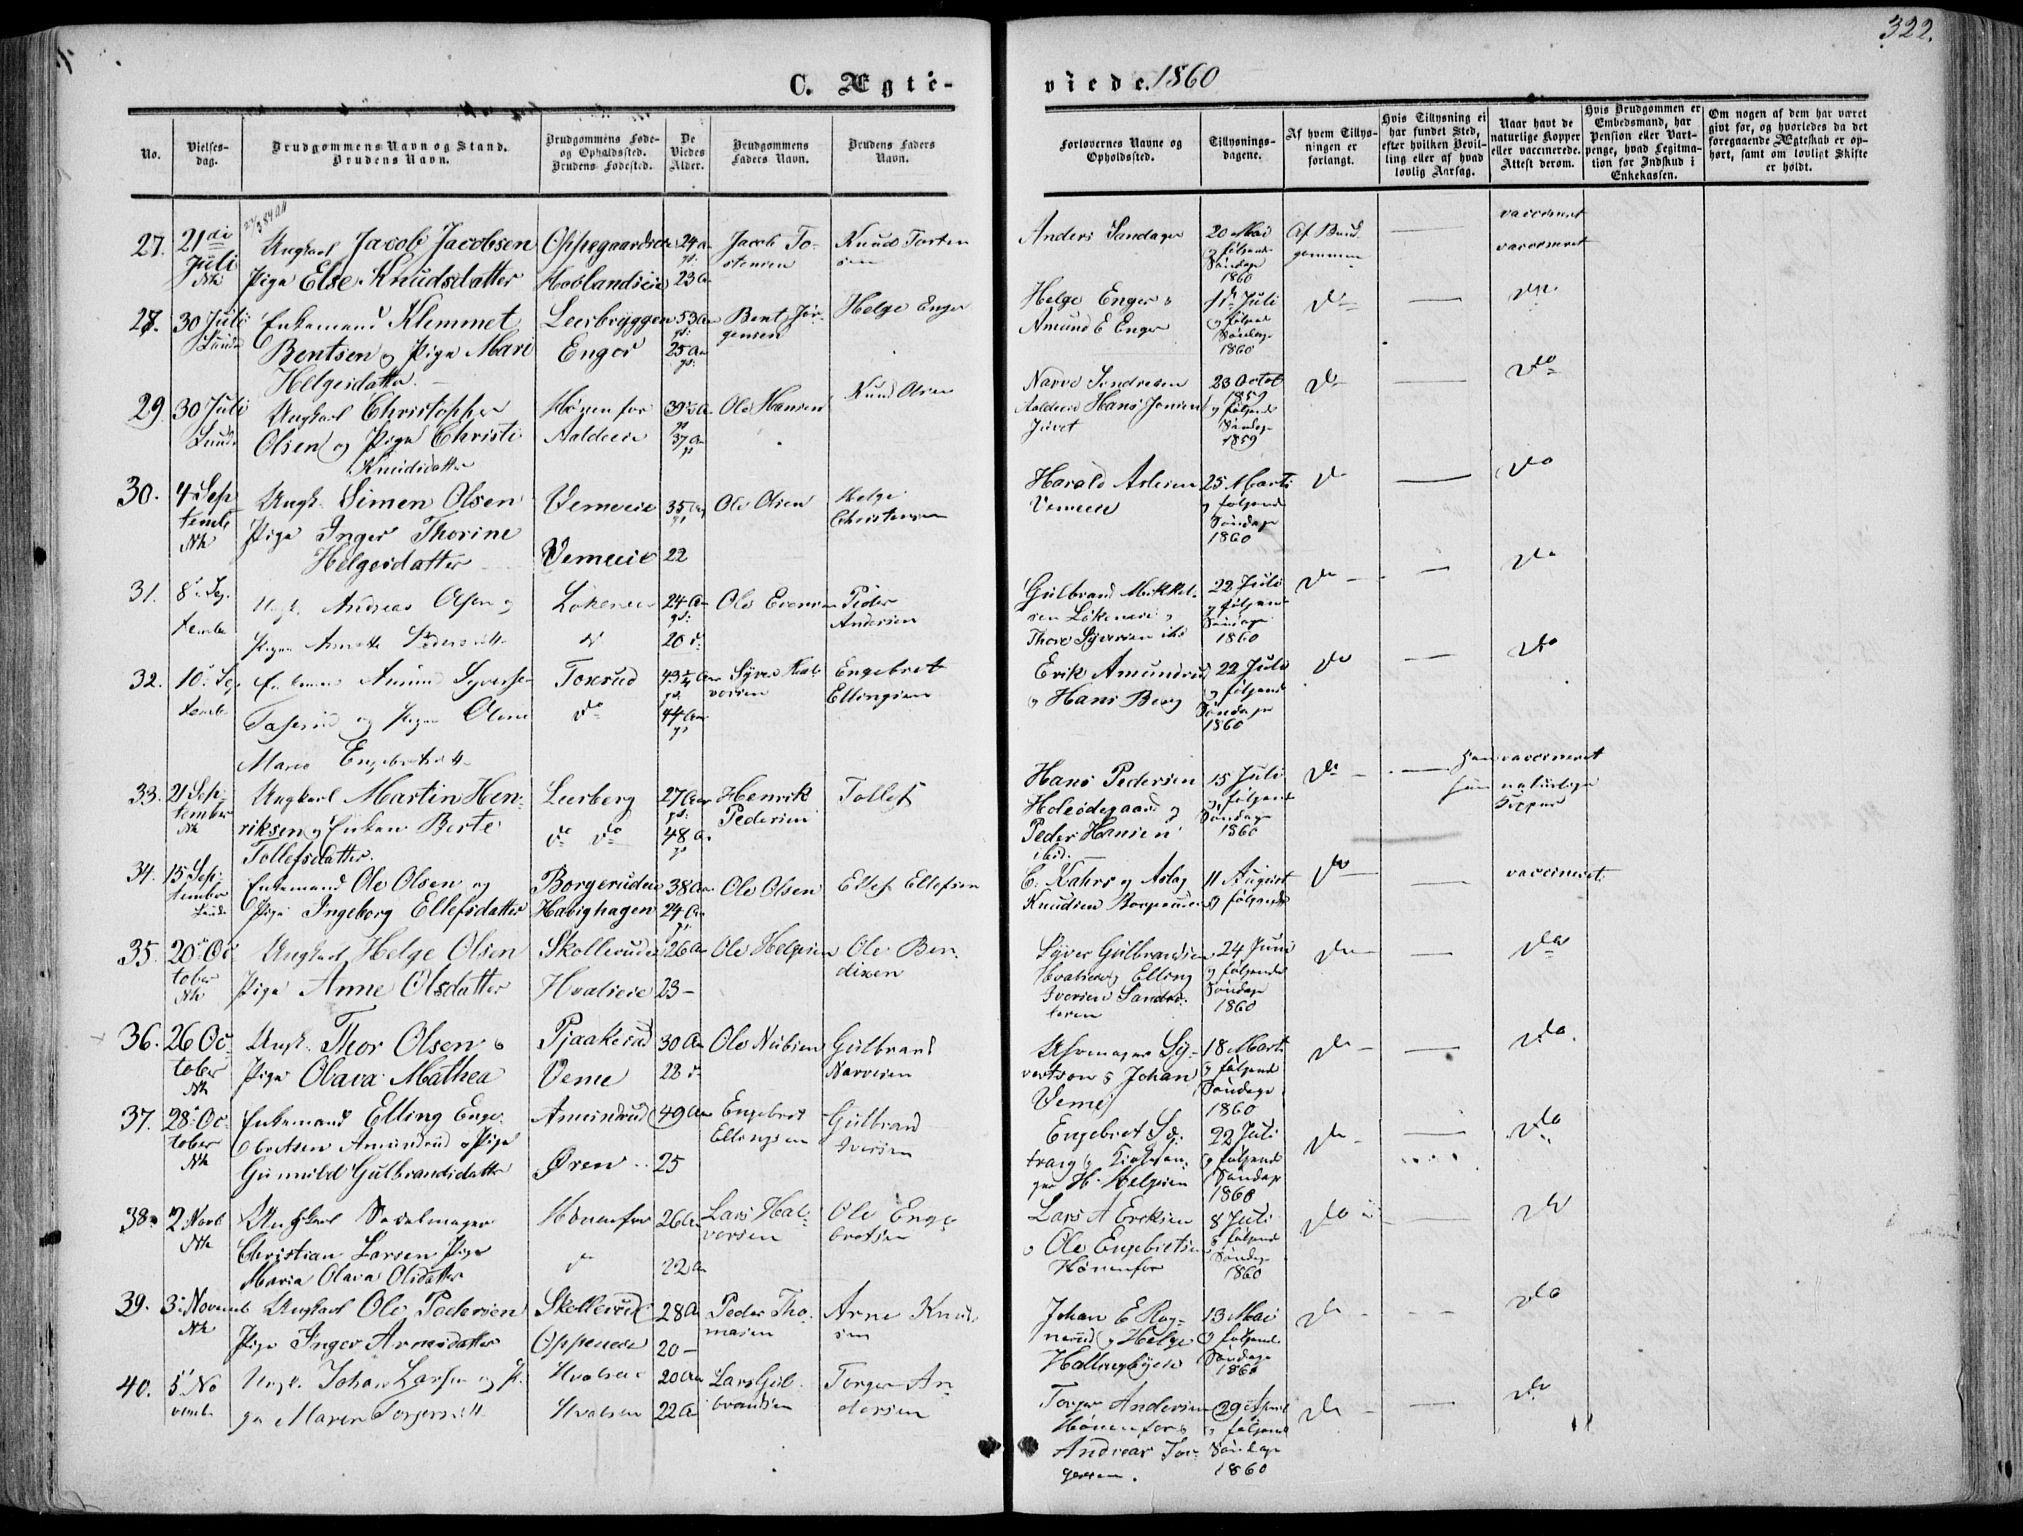 322.
C. Ægte-
viede. 1860
No.
Vielses-
dag.
Brudgommens Navn og Stand.
Brudens Navn.
Brudgommens Føde-
og Opholdssted.
Brudens Fødested.
De
Viedes
Alder.
Brudgommens
Faders Navn.
Brudens Faders
Navn.
Forlovernes Navne og
Opholdssted.
Tillysnings-
dagene.
Af hvem Tillys-
ningen er
forlangt.
Hvis Tillysning ei
har fundet Sted,
efter hvilken Bevil-
ling eller af hvad
lovlig Aarsag.
Naar havt de
naturlige Kopper
eller vaccinerede.
Attest derom.
Hvis Brudgommen er
Embedsmand, har
Pension eller Vart-
penge, hvad Legitima-
tion for Indskud i
Enkekassen.
Om nogen af dem har været
givt før, og hvorledes da det
foregaaende Ægteskab er op-
hørt, samt om lovligt Skifte
er holdt.
27. 21de Juli Nk
Ungkarl Jacob Jacobsen
Pige Else Knudsdatter
Oppegaardseie
Hovlandseie
24 Aar
23 Aar
Jacob To-
stensen
Knud Torsten
sen
Anders Sandager
20 Mai
og følgende
Søndage
1860
Af Brud
gommen
vaccineret
vaccineret
28. 30 Juli Lunde
Enkemand Klemmet
Bentsen og Pige Mari
Helgesdatter
Leerbryggen
Enger
53 Aar
25 Aar
Bent Jør-
gensen
Helge Enger
Helge Enger &
Amund E Enger
Juli
Søndage
1860
do
do
29. 30 Juli Lunde
Ungkarl Christopher
Olsen og Pige Christi
Knudsdatter
Hønenfos
Aaldeeie
39½ A
37 Aar
Ole Hansen
Knud Olsen
Hans Jonsen
23 Octob
1859
og følgende
Søndage
1859
do
do
30. 4 Sep-
temb Nk
Ungk. Simen Olsen
Pige Inger Thorine
Helgesdatter
Vemeeie
Vemeeie
35 Aar
22
Ole Olsen
Helge
Christensen
Harald Aslesen
Vemeeie
25 Marts
og følgende
Søndage
1860
do
do
31. 8de Sep-
tember
Ungk. Andreas Olsen og
Pigen Annette Pedersdatter
Løkeneie
do
24 Aar
20 do
Ole Evensen
Peder
Andersen
Gulbrand Mikkel-
sen Løkeneie
Thore Syversen ibd
22 Juli
og følgende
Søndage
1860
do
do
32. 10de Sep
tember
Enkemand Amund Syversen
og Pigen Olene
Marie Engebretsdatter
Toserud
do
43¼ Aar
44 Aar
Syver Hal-
vorsen
Engebret
Ellingsen
Erik Amundrud
& Hans Berg
22 Juli
og følgende
Søndage
1860
do
do
33. 21 Sep-
tember Nk
Ungkarl Martin Hen-
riksen og Enken Berte
Tollefsdatter.
Leerberg
do do
27 Aar
48 Aar
Henrik
Pedersen
Tollef
Hans Pedersen
Holeødegaard og
Peder Hansen
ibid.
15 Juli
og følgende
Søndage
1860
do
Han vaccineret
hun naturlige
Kopper
34. 15 Sep-
tember Lunde
Enkemand Ole Olsen og
Pige Ingeborg Ellefsdatter
Borgerudeie
Habighagen
38 Aar
24 Aar
Ole Olsen
Ellef Ellefsen
C. Kahrs og Aslag
Knudsen
11 August
og følgende
do
vaccineret.
35. 20de Oc-
tober Nk
Ungkarl Helge Olsen
Pige Anne Olsdatter
Skollerudeie
Hvalseie
26 Aar
23 —
Ole Helgesen
Ole Ben-
dixen
Syver Gulbrandsen
Hvalseie og Elling
Iversen
24 Juni
og følgende
Søndage
1860
do
do
36. 26 Oc-
tober Nk
Ungk. Thor Olsen &
Pige Olava Mathea
Pjaakerud
Veme
30 Aar
28 do
Ole
Gulbrand
Narvesen
Johan
Veme
18 Marts
og følgende
Søndage
1860
do
do.
37. 28de Oc-
tober Nk
Enkemand Elling Enge-
bretsen Amundrud & Pige
Gunnild Gulbrandsdatter
Amundrud
Øren
49 Aar
25
Engebret
Ellingsen
Gulbrand
Iversen
Engebret
H. Helgesen
22 Juli
og følgende
Søndage
1860
do
do
38. 2 Novb Nk
Ungkarl Sadelmager
Christian Larsen Pige
Maria Olava Olsdatter
Hønenfos
do
26 Aar
22 Aar
Lars Hal-
vorsen
Ole Enge
bretsen
Lars A Eriksen
& Ole Engebretsen
Hønenfos
8 Juli
og følgende
Søndage
1860
do
do
39. 3de Novemb Nk
Ungkarl Ole Pedersen
Pige Inger Arnesdatter
Skollerud
Oppeneie
28 A
20 —
Peder Tho-
masen
Arne Knud-
sen
Johan E Rog-
nerud og Helge
Hallingbyeie
13 Mai
og følgende
Søndage
1860
do
do
40. 5 No
vemb
Ungk. Johan Larsen og Pi-
ge Maren Torgersdatter
Hvalseie
Hvalseie
20 Aar
22 A
Lars Gul-
brandsen
Torger An-
dersen
Torger Andersen
Hønenfos &
Andreas Tor-
gersen.
29 April
og følgende
Søndage
1860
do
do